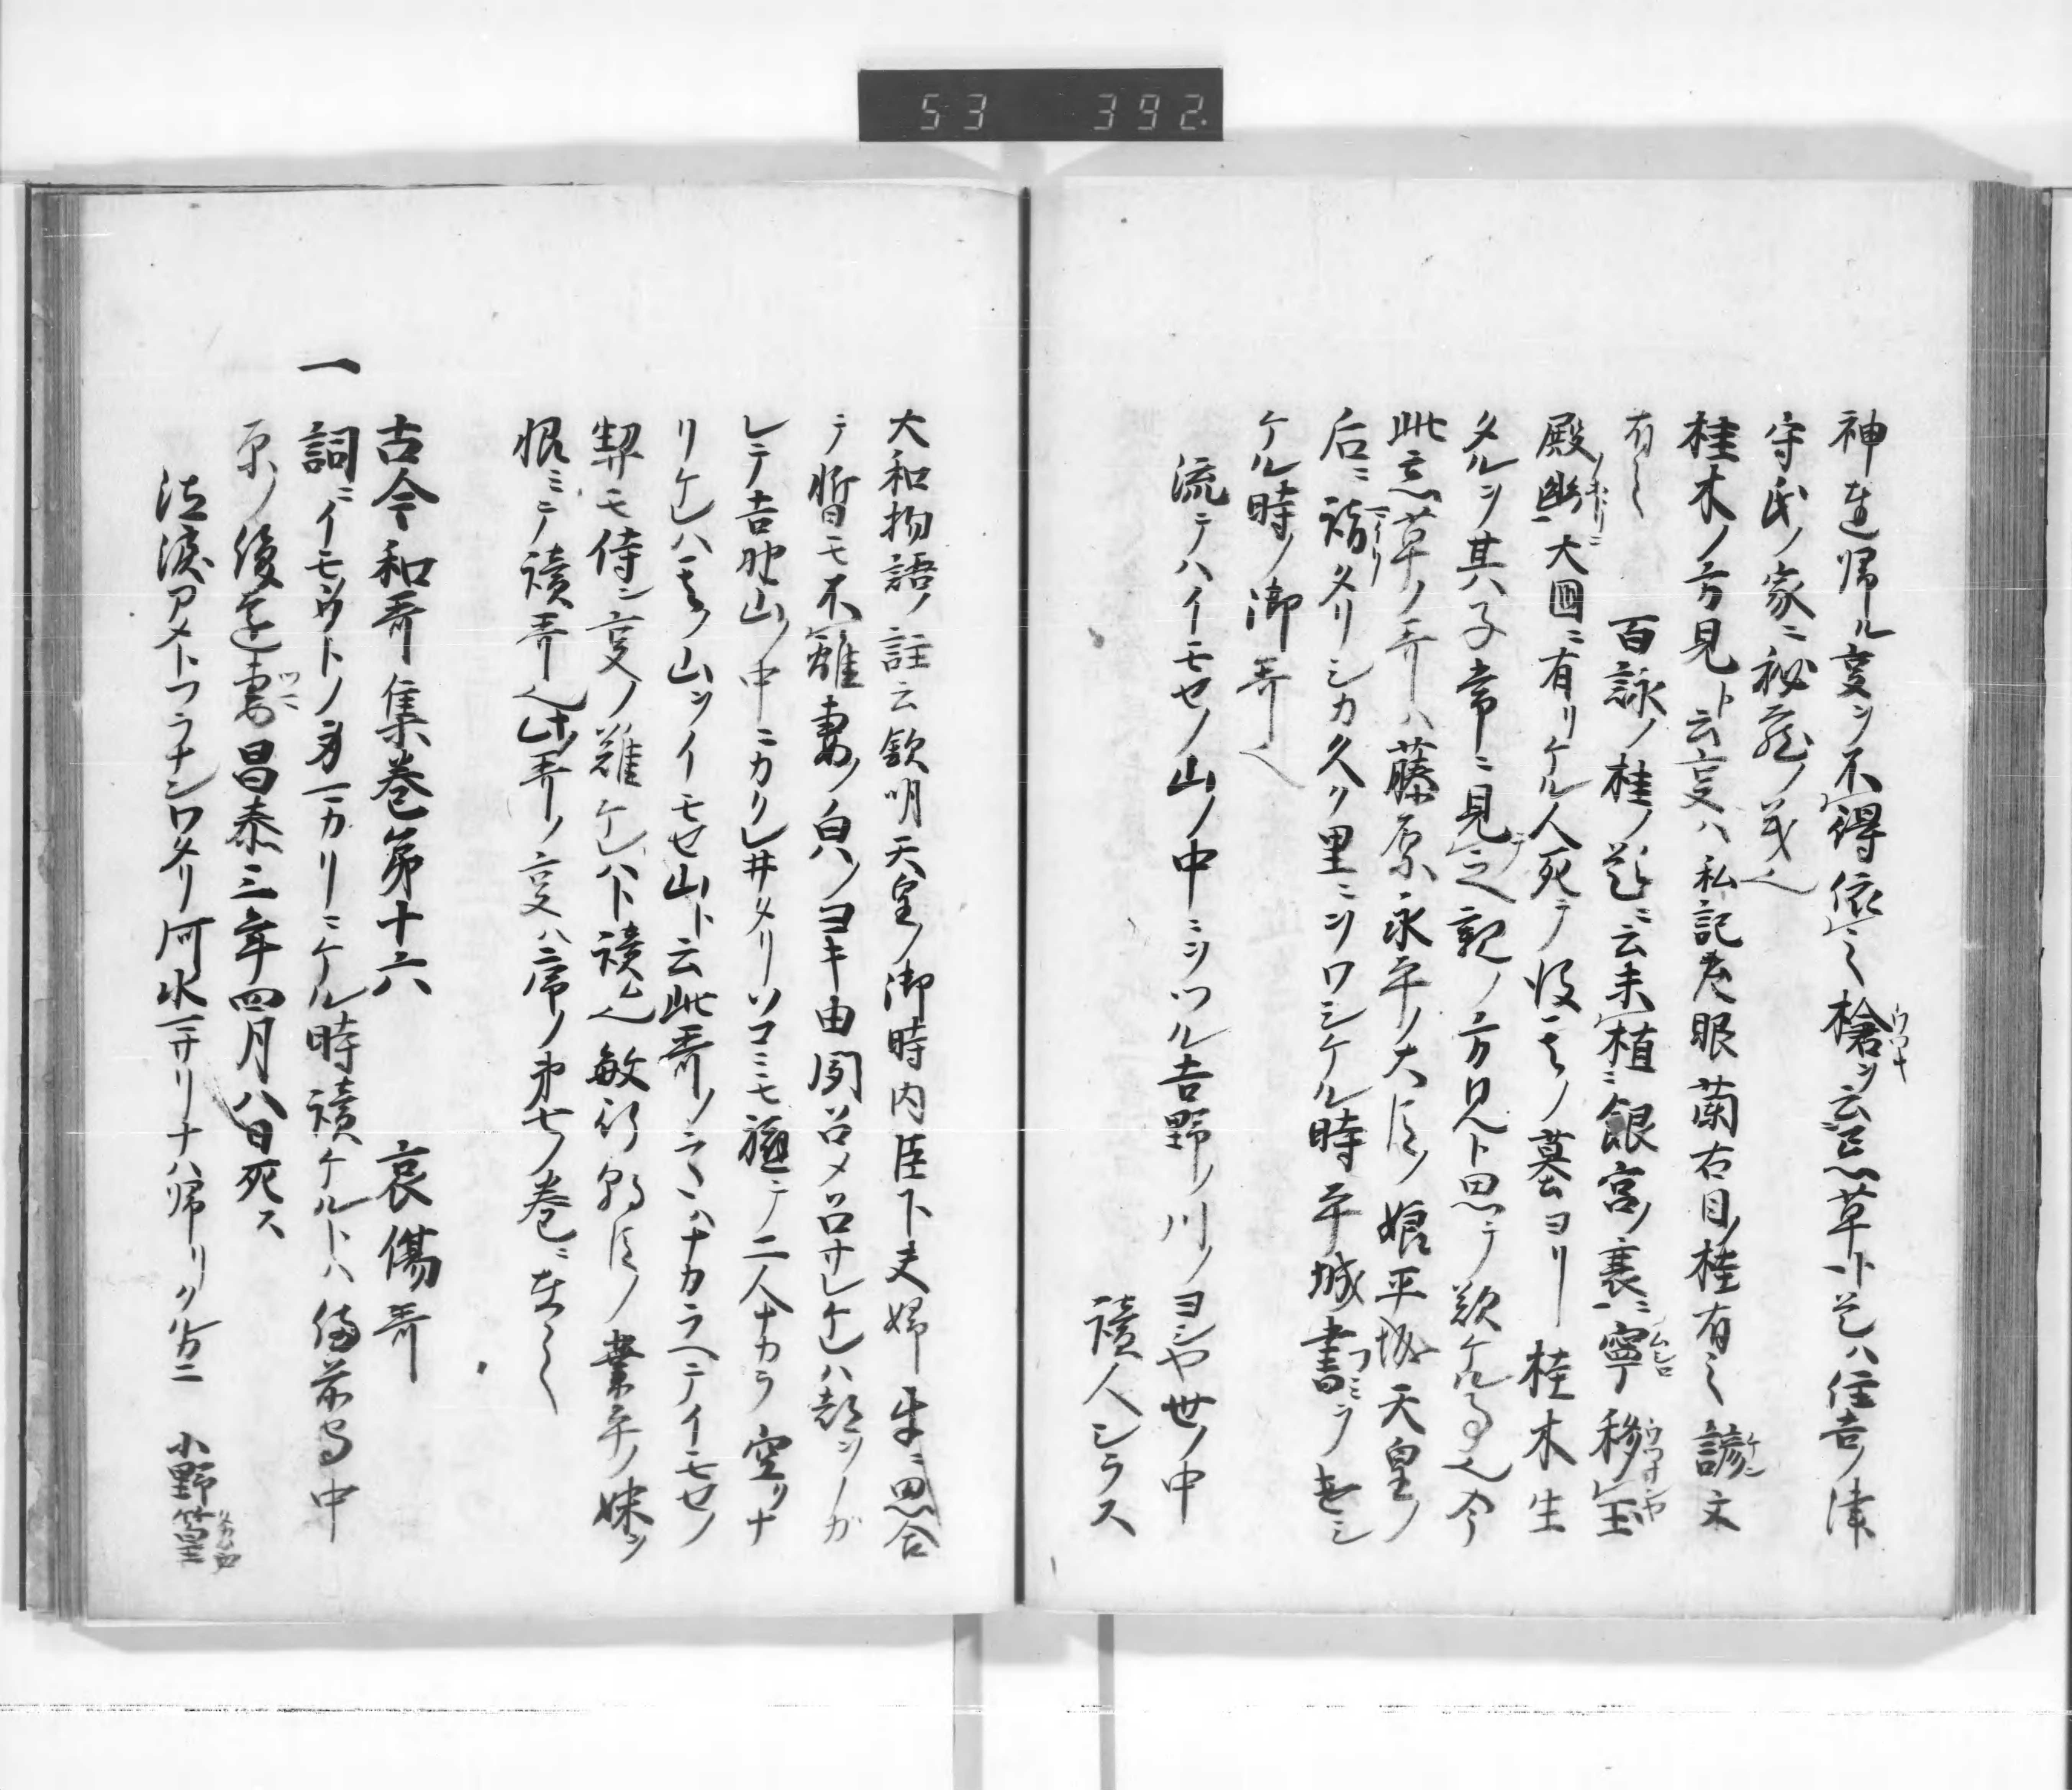 53 392
神達帰ル事ヲ不得依之檜ヲ云忘草ト是ハ住吉ノ津
守氏ノ家ニ秘蔵ノ義也
桂木ノ方見ト云事ハ私記左眼蘭右目ノ桂有之諺文
有之 百詠ノ桂ノ題ニ云未植銀宮ノ裏ニ寧移玉
殿幽大国ニ有リケル人死テ後其ノ墓ヨリ桂木生
タルヲ其ノ子常ニ見之親ノ方見ト思テ歎ケル也今
此忘草ノ哥ハ藤原永平ノ大臣ノ娘平城天皇ノ
后ニ詣タリシカ久ク里ニヲワシケル時平城書ヲ
ケル時ノ御哥也
流テハイモセノ山ノ中ニヲツル吉野ノ川ノヨシヤ世ノ中
読人シラス
大和物語ノ註云欽明天皇ノ御時内臣下夫婦ニ思合
テ暫モ不離妻ノ白ハノヨキ由聞召メ召サレケレハ
レテ吉野山ノ中ニカクレ井タリソコニモ二人ナカラ空クナ
リケレハ其ノ山ヲイモセ山ト云此哥ノ心ハナカラヘテイモセノ
契モ侍ン事ノ難ケレハト読也敏行朝臣ノ業平ノ妹ヲ
恨ミテ読哥也此哥ノ事ハ二席ノ第七ノ巻ニ在之
古今和哥集巻第十六 哀傷哥
一 詞ニイモウトノ身マカリニケル時読ケルトハ備前守中
原ノ後蓮妻昌泰三年四月八日死ス
泣涙アメトフラナンワタリ河水マサリナハ帰リクルカニ 小野篁